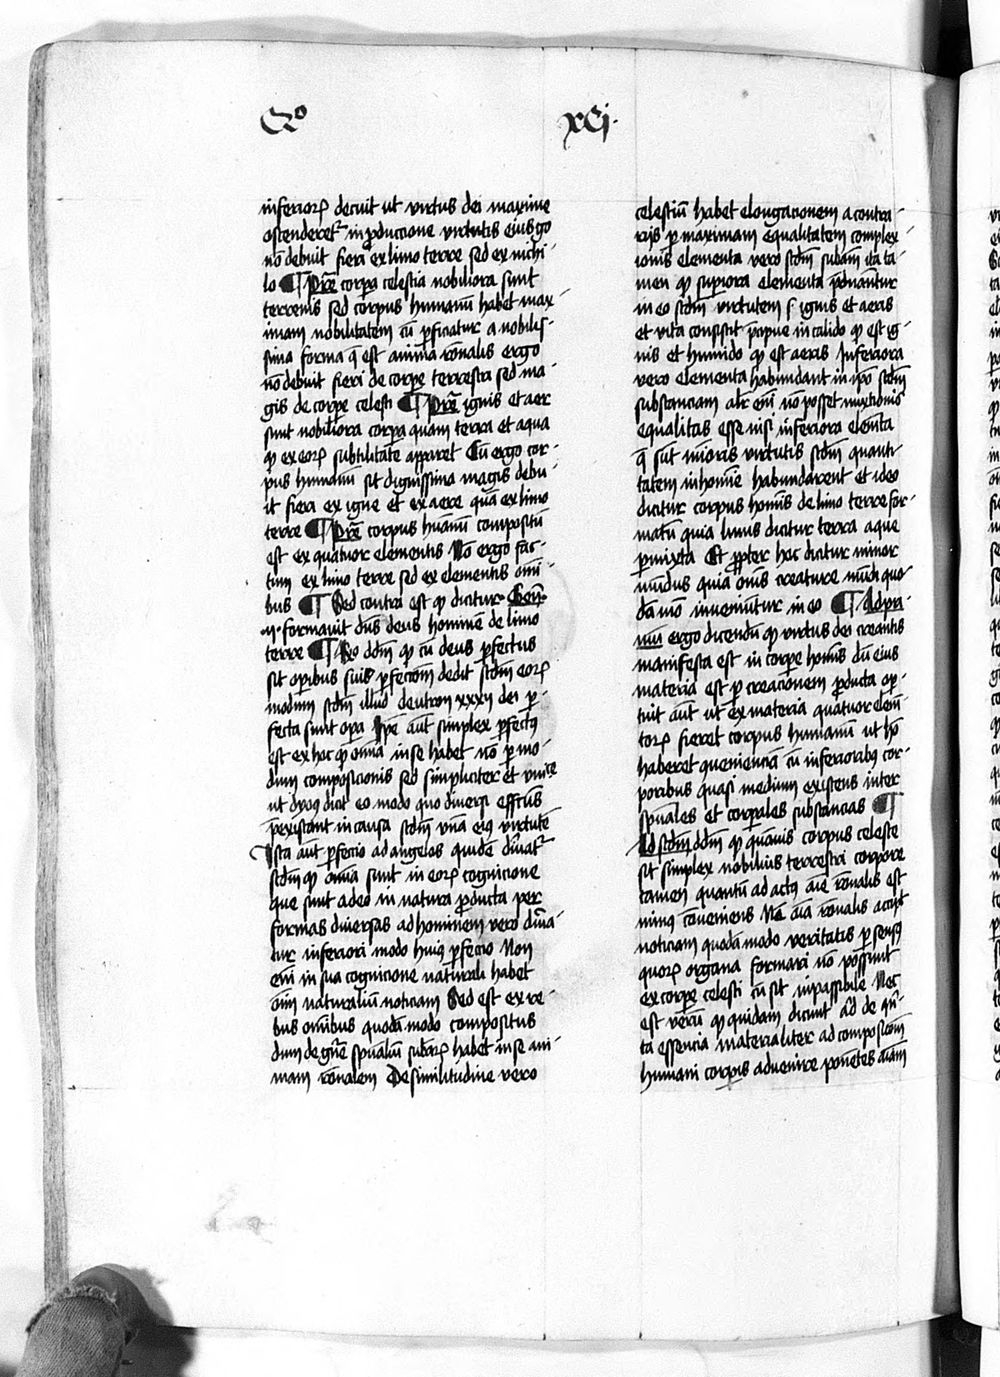 Qo xCj.
inferioꝝ decuit ut virtus dei maxime
ostenderetᷣ in ꝓduccione virtutis eius g̊
nō debuit fieri ex limo terre sed ex nichi-
lo ¶ Pret̄ea corpora celestia nobiliora sunt
terrenis sed corpus humanū habet max-
imam nobilitatem cū ꝑficiatur a nobilis-
sima forma q̄ est anima rōnalis ergo
nō debuit fieri de corpe terrestri sed ma-
gis de corpe celesti ¶ Pret̄ea ignis et aer
sunt nobiliora corpora quam terra et aqua
qꝫ ex eoꝝ subtilitate apparet Cū ergo cor-
pus humanū sit dignissima magis debu-
it fieri ex igne et ex aere quā ex limo
terre ¶ Pret̄ea corpus hūanū compositū
est ex quatuor elementis Nō ergo fac-
tum ex limo terre sed ex elementis omī-
bus ¶ Sed contra est qꝫ dicitur Gen̄.
.ij. formauit dn̄s deus hominē de limo
terre ¶ Rᵒ dd̄m qꝫ cū deus ꝑfectus
sit oꝑibus suis ꝑfectōm dedit scdm̄ eoꝝ
modum scdm̄ illud deutron xxxij dei ꝑ-
fecta sunt opera Ip̄e aūt simplex ꝑfectꝰ
est ex hoc qꝫ omīa in se habet nō ꝑ mo-
dum composicionis sed simpliciter et vnite
ut dyoꝰ dicit eo modo quo diuersi effectus
p̄existunt in causa scdm̄ vnā eiꝰ virtutē
Ista aūt ꝑfectio ad angelos quidē diriuatᷣ
scdm̄ qꝫ omīa sunt in eoꝝ cognicione
que sunt a deo in natura ꝓducta per
formas diuersas ad hominem vero diriua-
tur inferiori modo huiꝰ ꝑfectio Non
eni in sua cognicione naturali habet
oim̄ naturaliū noticiam Sed est ex re-
bus omībus quodā modo compositus
dum de gn̄e spūaliū subaꝝ habet in se ani-
mam rōnalem De similitudine vero
celestiū habet elongacionem a contra-
riis ꝑ maximam equalitatem complex-
ionis elementa vero scdm̄ subam̄ ita ta-
men qꝫ superiora elementa p̄dn̄antur
in eo scdm̄ virtutem ſ ignis et aeris
et vita consistit p̄cipue in calido qꝫ est ig-
nis et humido qꝫ est aeris Inferiora
vero elementa habundant in ip̄o scdm̄
substanciam alr̄ eni nō posset mixtionis
equalitas esse nisi inferiora elem̄ta
q̄ sūt mīoris virtutis scdm̄ quanti-
tatem in homīe habundarent et ideo
dicitur corpus homīs de limo terre for-
matū quia limus dicitur terra aque
ꝑmixta Et ꝓpter hoc dicitur minor
mundus quia omīs creature mūdi quo-
dā mō inueniūtur in eo ¶ Ad pri-
mū ergo dicendū qꝫ virtus dei creantis
manifesta est in corpe homīs dū eius
materia est ꝑ creacionem ꝓducta op̄-
tuit aūt ut ex materia quatuor elem̄-
toꝝ fieret corpus humanū ut hō
haberet ꝯuenienciā cū inferioribꝰ cor-
poribus quasi medium existens inter
spūales et corporales substancias ¶
Ad scdm̄ dd̄m qꝫ quāuis corpus celeste
sit simplex nobilius terrestri corpore
tamen quantū ad actꝰ aīe rōnalis est
minꝰ cōueniens Nā aīa rōnalis accipit
noticiam quodā modo veritatis ꝑ sensꝰ
quoꝝ organa formari nō possunt
ex corpe celesti cū sit impassibile Nec
est verū qꝫ quidam dicunt ad de qn̄-
ta essencia materialiter ad composicōm
humani corporis aduenire ponētes aīam